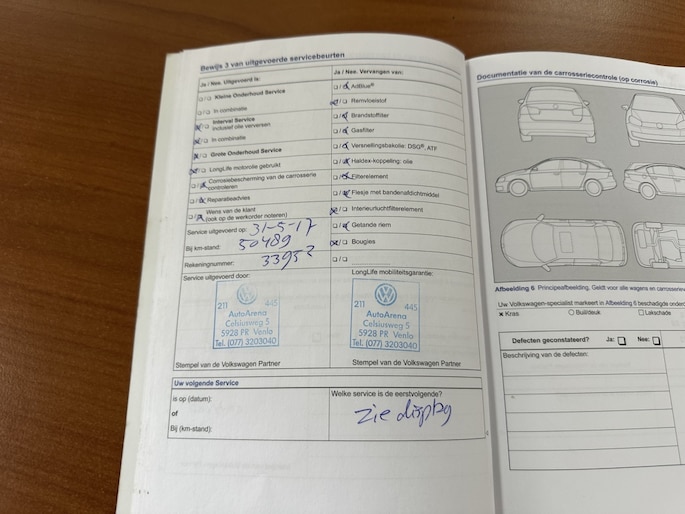 Bewijs 3 van uitgevoerde servicebeurten
Ja / Nee. Uitgevoerd is:
Kleine Onderhoud Service
In combinatie
Interval Service
inclusief olie verversen
In combinatie
Grote Onderhoud Service
LongLife motorolie gebruikt
Corrosiebescherming van de carrosserie
controleren
Reparatieadvies
Wens van de klant
(ook op de werkorder noteren)
Service uitgevoerd op: 31-5-17
Bij km-stand: 50489
Rekeningnummer: 33952
Service uitgevoerd door:
211 445
AutoArena
Celsiusweg 5
5928 PR Venlo
Tel. (077) 3203040
Stempel van de Volkswagen Partner
Ja / Nee. Vervangen van:
AdBlue®
Remvloeistof
Brandstoffilter
Gasfilter
Versnellingsbakolie: DSG®, ATF
Haldex-koppeling: olie
Filterelement
Flesje met bandenafdichtmiddel
Interieurluchtfilterelement
Getande riem
Bougies
LongLife mobiliteitsgarantie:
211 445
AutoArena
Celsiusweg 5
5928 PR Venlo
Tel. (077) 3203040
Stempel van de Volkswagen Partner
Uw volgende Service
is op (datum):
of
Bij (km-stand):
Welke service is de eerstvolgende?
zie display
Documentatie van de carrosseriecontrole (op corrosie)
Afbeelding 6 Principeafbeelding. Geldt voor alle wagens en carrosserie
Uw Volkswagen-specialist markeert in Afbeelding 6 beschadigde onderd
× Kras
○ Buil/deuk
□ Lakschade
Defecten geconstateerd? Ja: □ Nee: □
Beschrijving van de defecten: